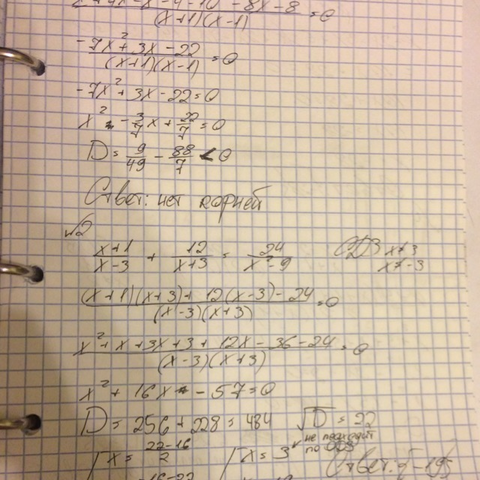 (x+1)(x-1) = 0
-7x²+3x-22 / (x+1)(x-1) = 0
-7x²+3x-22=0
x² - 3/7x + 22/7 = 0
D = 9/49 - 88/7 < 0
Ответ: нет корней
√2
x+1 / x-3 + 12 / x+3 = 24 / x²-9 ОДЗ x≠3
x≠-3
(x+1)(x+3)+12(x-3)-24 / (x-3)(x+3) = 0
x²+x+3x+3+12x-36-24 / (x-3)(x+3) = 0
x²+16x-57=0
D = 256+228=484 √D = 22
x = 22-16 / 2 x = 3 не подходит по ОДЗ
Ответ: